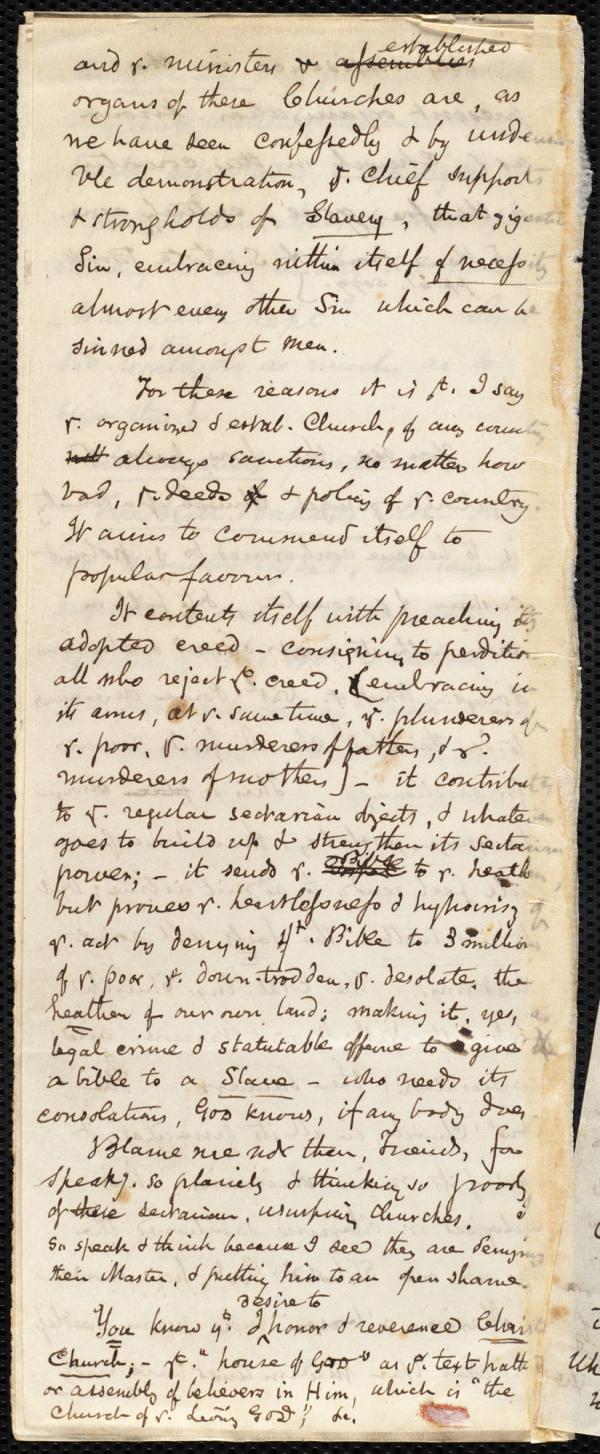 established
and yᵉ. ministers & assemblies
organs of these Churches are, as
we have seen confessedly & by unde
ble demonstration, yᵉ. chief support
& strongholds of Slavery, that gig
Sin, embracing within itself of necessity
almost every other Sin which can be
sinned amongst men.
For these reasons it is yᵗ. I say
yᵉ. organized & estab. Church, of any country
not always sanctions, no matter how
bad, yᵉ. deeds of & policy of yᵉ. country.
It aims to commend itself to
popular favour.
It contents itself with preaching its
adopted creed - consigning to perdition
all who reject yᵗ. creed, (embracing in
its arms, at yᵉ. same time, yᵉ. plunderers of
yᵉ. poor, yᵉ. murderers of fathers, & yᵉ.
murderers of mothers) - it contributes
to yᵉ. regular sectarian objects, & whatever
goes to build up & strengthen its sectarian
power; - it sends yᵉ. Bible to yᵉ. heathen,
but proves yᵉ. heartlessness & hypocrisy of
yᵉ. act by denying yᵗ. Bible to 3 million
of yᵉ. poor, yᵉ. down-trodden, yᵉ. desolate, the
heathen of our own land; making it, yes, a
legal crime & statutable offence to give
a bible to a Slave - who needs its
consolations, God knows, if any body does
Blame me not then, Friends, for
speakᵍ. so plainly & thinking so poorly
of these sectarian, usurping Churches. I
so speak & think because I see they are denying
their Master, & putting him to an open shame.
desire to
You know yᵗ. I honor & reverence Christ
Church; - yᵗ. "house of God" as yᵉ. text hath
or assembly of believers in Him, which is "the
Church of yᵉ. living God," &c.